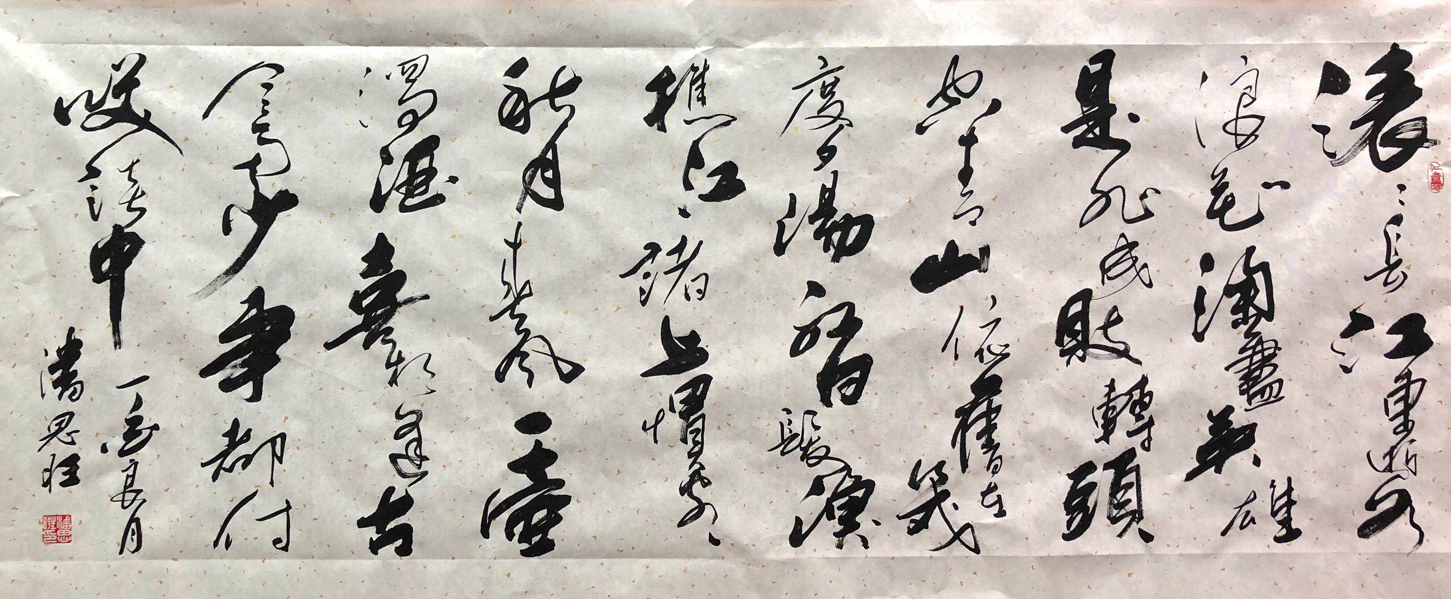 滾〻長江東逝水
浪花淘盡英雄
是非成敗轉頭
空青山依舊在幾
度夕陽紅白髮漁
樵江渚上慣看
秋月春風一壺
濁酒喜相逢古
今多少事都付
咲談中
良月
潘思旺